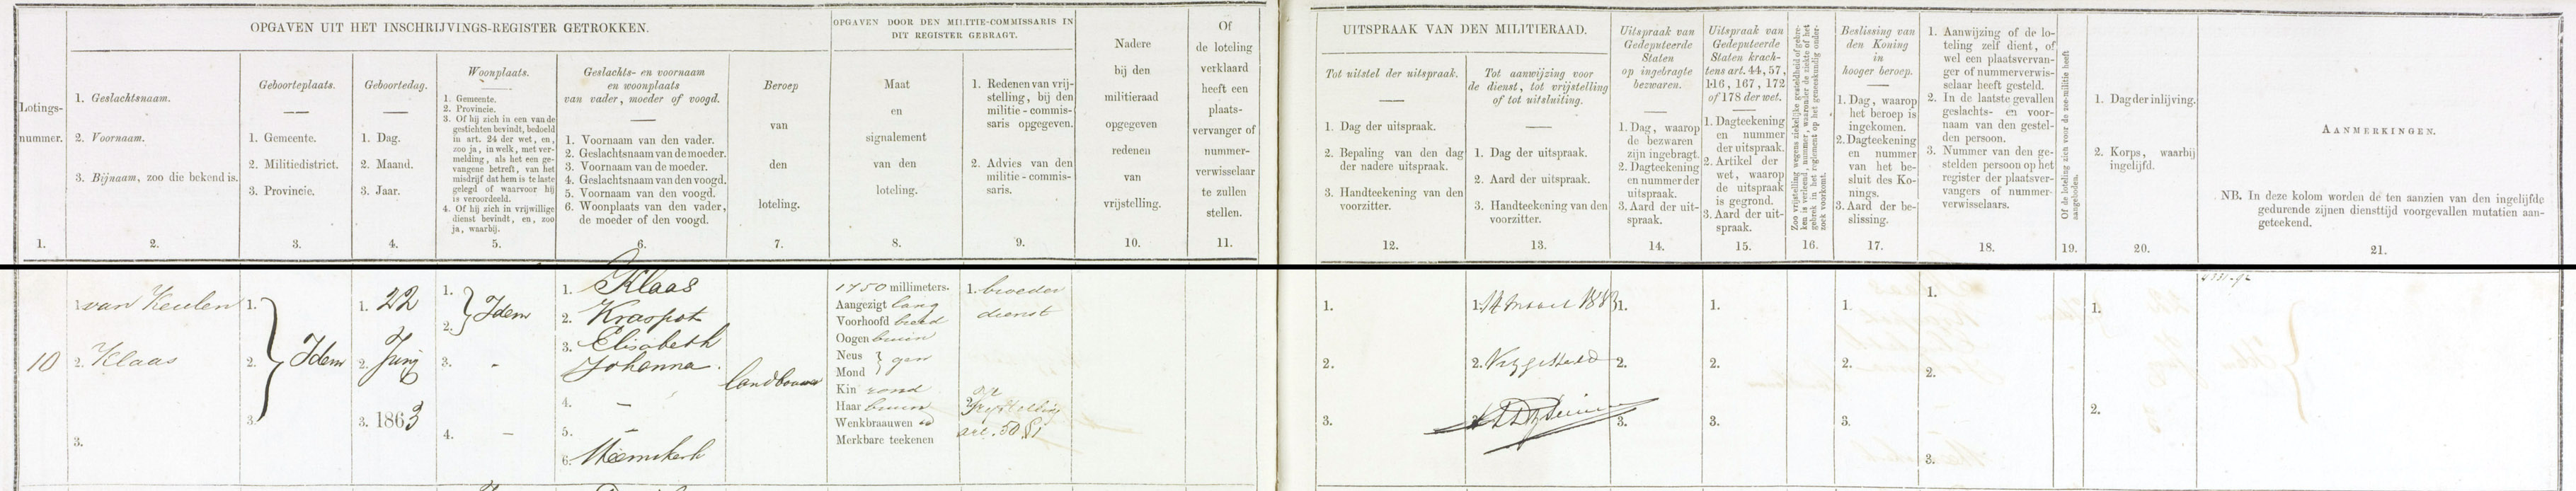 OPGAVEN UIT HET INSCHRIJVINGS-REGISTER GETROKKEN.
Lotings-
nummer.
1.
1. Geslachtsnaam.
2. Voornaam.
3. Bijnaam, zoo die bekend is.
2.
Geboorteplaats.
1. Gemeente.
2. Militiedistrict.
3. Provincie.
3.
Geboortedag.
1. Dag.
2. Maand.
3. Jaar.
4.
Woonplaats.
1. Gemeente.
2. Provincie.
3. Of hij zich in een van de
gestichten bevindt, bedoeld
in art. 24 der wet, en,
zoo ja, in welk, met ver-
melding, als het een ge-
vangene betreft, van het
misdrijf dat hem is te laste
gelegd of waarvoor hij
is veroordeeld.
4. Of hij zich in vrijwillige
dienst bevindt, en, zoo
ja, waarbij.
5.
Geslachts- en voornaam
en woonplaats
van vader, moeder of voogd.
1. Voornaam van den vader.
2. Geslachtsnaam van de moeder.
3. Voornaam van de moeder.
4. Geslachtsnaam van den voogd.
5. Voornaam van den voogd.
6. Woonplaats van den vader,
de moeder of den voogd.
6.
Beroep
van
den
loteling.
7.
OPGAVEN DOOR DEN MILITIE-COMMISSARIS IN
DIT REGISTER GEBRAGT.
Maat
en
signalement
van den
loteling.
8.
1. Redenen van vrij-
stelling, bij den
militie-commis-
saris opgegeven.
2. Advies van den
militie-commis-
saris.
9.
Nadere
bij den
militieraad
opgegeven
redenen
van
vrijstelling.
10.
Of
de loteling
verklaard
heeft een
plaats-
vervanger of
nummer-
verwisselaar
te zullen
stellen.
11.
UITSPRAAK VAN DEN MILITIERAAD.
Tot uitstel der uitspraak.
1. Dag der uitspraak.
2. Bepaling van den dag
der nadere uitspraak.
3. Handteekening van den
voorzitter.
12.
Tot aanwijzing voor
de dienst, tot vrijstelling
of tot uitsluiting.
1. Dag der uitspraak.
2. Aard der uitspraak.
3. Handteekening van den
voorzitter.
13.
Uitspraak van
Gedeputeerde
Staten
op ingebragte
bezwaren.
1. Dag, waarop
de bezwaren
zijn ingebragt.
2. Dagteekening
en nummer der
uitspraak.
3. Aard der uit-
spraak.
14.
Uitspraak van
Gedeputeerde
Staten krach-
tens art. 44, 57,
116, 167, 172
of 178 der wet.
1. Dagteekening
en nummer
der uitspraak.
2. Artikel der
wet, waarop
de uitspraak
is gegrond.
3. Aard der uit-
spraak.
15.
Zoo vrijstelling wegens ziekelijke gesteldheid of gebre-
ken is verleend, nummer, waaronder de ziekte of het
gebrek in het reglement op het geneeskundig onder-
zoek voorkomt.
16.
Beslissing van
den Koning
in
hooger beroep.
1. Dag, waarop
het beroep is
ingekomen.
2. Dagteekening
en nummer
van het be-
sluit des Ko-
nings.
3. Aard der be-
slissing.
17.
1. Aanwijzing of de lo-
teling zelf dient, of
wel een plaatsvervan-
ger of nummerverwis-
selaar heeft gesteld.
2. In de laatste gevallen
geslachts- en voor-
naam van den gestel-
den persoon.
3. Nummer van den ge-
stelden persoon op het
register der plaatsver-
vangers of nummer-
verwisselaars.
18.
Of de loteling zich voor de zee-militie heeft
aangeboden.
19.
1. Dag der inlijving.
2. Korps, waarbij
ingelijfd.
20.
AANMERKINGEN.
NB. In deze kolom worden de ten aanzien van den ingelijfde
gedurende zijnen diensttijd voorgevallen mutatien aan-
geteekend.
21.
10
1. van Keulen
2. Klaas
3.
1.
2. Idem
3.
1. 22
2. Junij
3. 1863
1. Idem
2.
3. -
4. -
1. Klaas
2. Kraspot
3. Elisabeth
Johanna.
4. -
5. -
6. Heemskerk
landbouwer
1750 millimeters.
Aangezigt lang
Voorhoofd breed
Oogen bruin
Neus
Mond } gew
Kin rond
Haar bruin
Wenkbraauwen id
Merkbare teekenen
1. broeder
dienst
2. Vrijstelling
art. 50 §1
1.
2.
3.
1. 14 Maart 1883
2. Vrijgesteld
3.
1.
2.
3.
1.
2.
3.
1.
2.
3.
1.
2.
3.
1.
2.